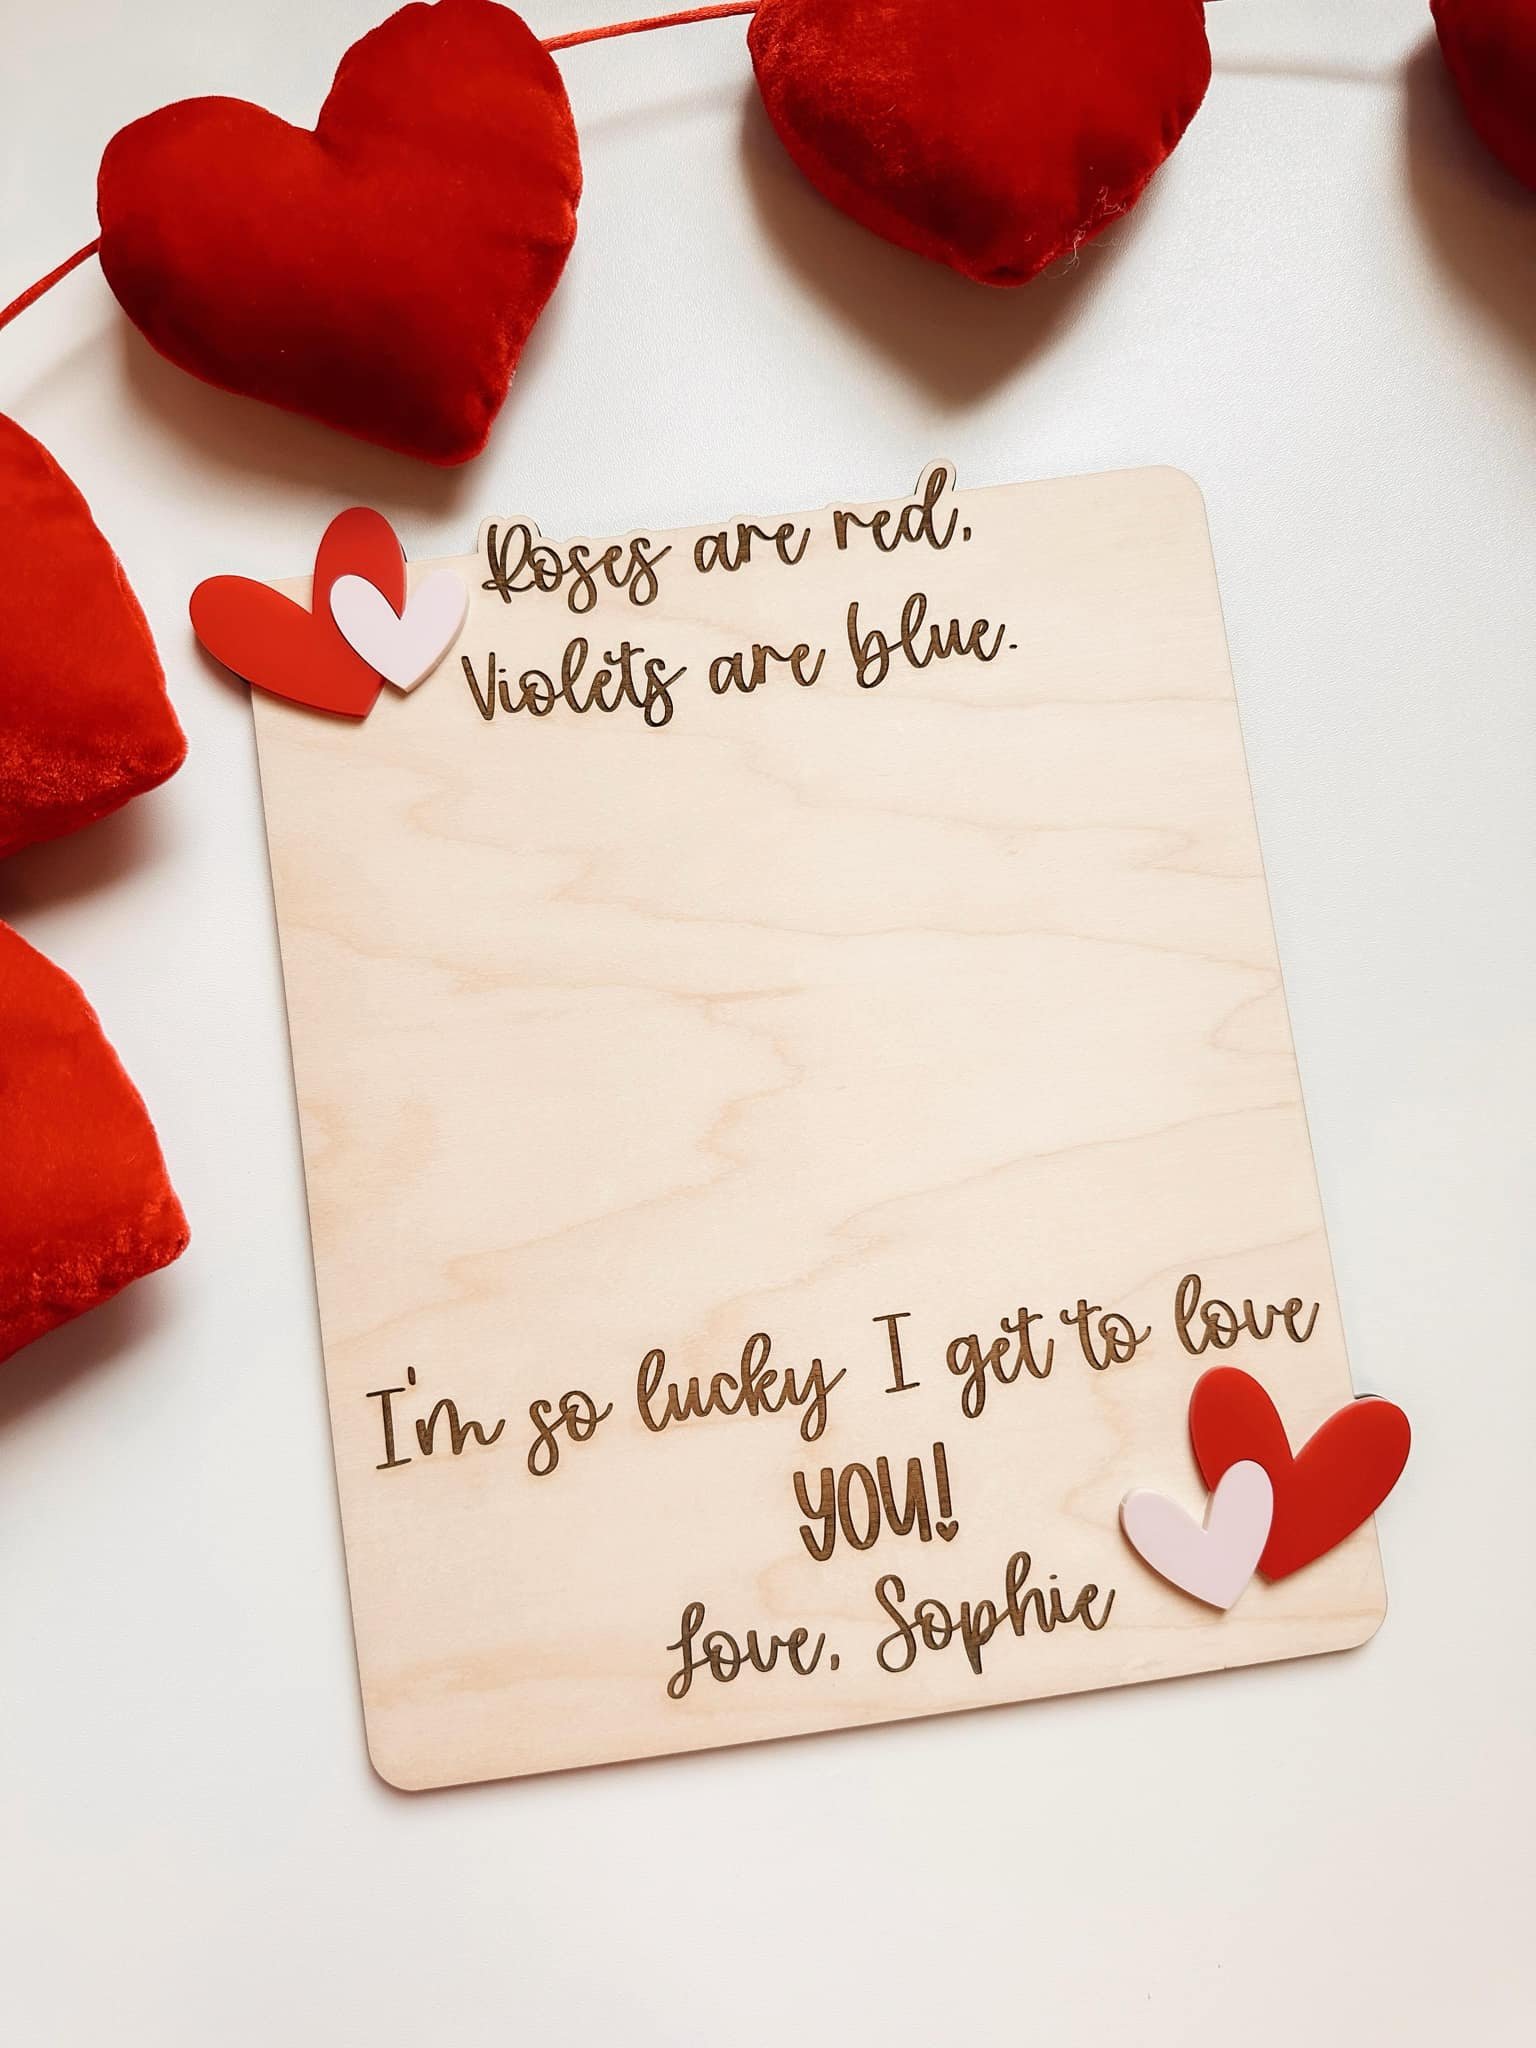 Roses are red,
Violets are blue.
I'm so lucky I get to love
YOU!
Love, Sophie